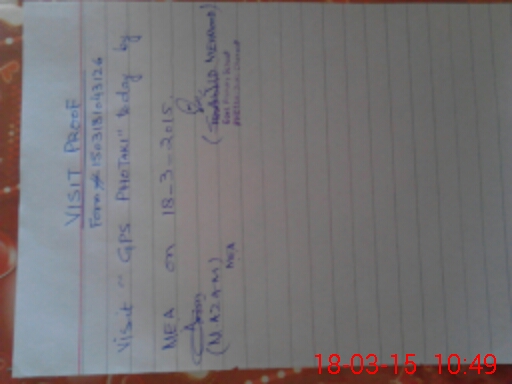 VISIT PROOF
Form # 1503181043126
Visit "GPS PHOTAKI" today by
MEA on 18-3-2015.
(N.AZAM)
MEA
MEHMOOD)
18-03-15 10:49